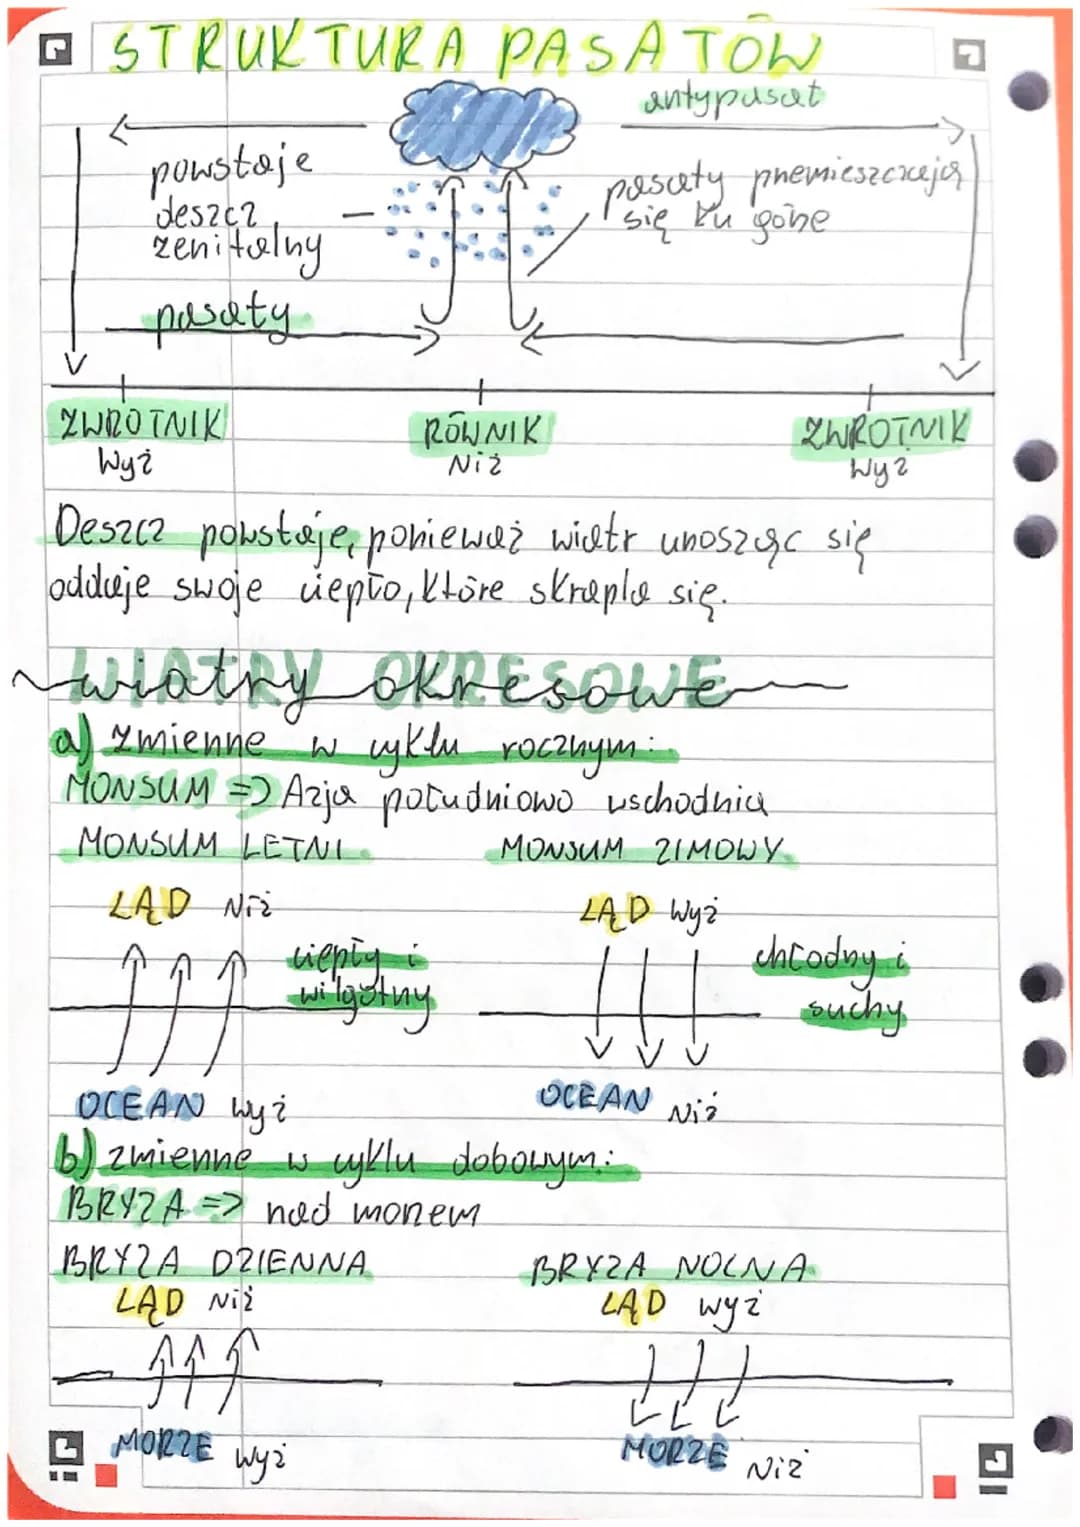 STRUKTURA PASATÓW
antypasat
powstaje
deszcz
zenitalny
pasaty przemieszczają
się ku górze
pasaty
ZWROTNIK
Wyż
RÓWNIK
Niż
ZWROTNIK
Wyż
Deszcz powstaje, ponieważ wiatr unosząc się
oddaje swoje ciepło, które skrapla się.
wiatry okresowe
WIATRY OKRESOWE
a) zmienne w cyklu rocznym:
MONSUM => Azja południowo wschodnia
MONSUM LETNI
MONSUM ZIMOWY
LĄD Niż
LĄD Wyż
ciepły i
wilgotny
chłodny i
suchy
OCEAN Wyż
OCEAN Niż
b) zmienne w cyklu dobowym:
BRYZA => nad morzem
BRYZA DZIENNA
BRYZA NOCNA
LĄD Niż
LĄD Wyż
MORZE Wyż
MORZE Niż